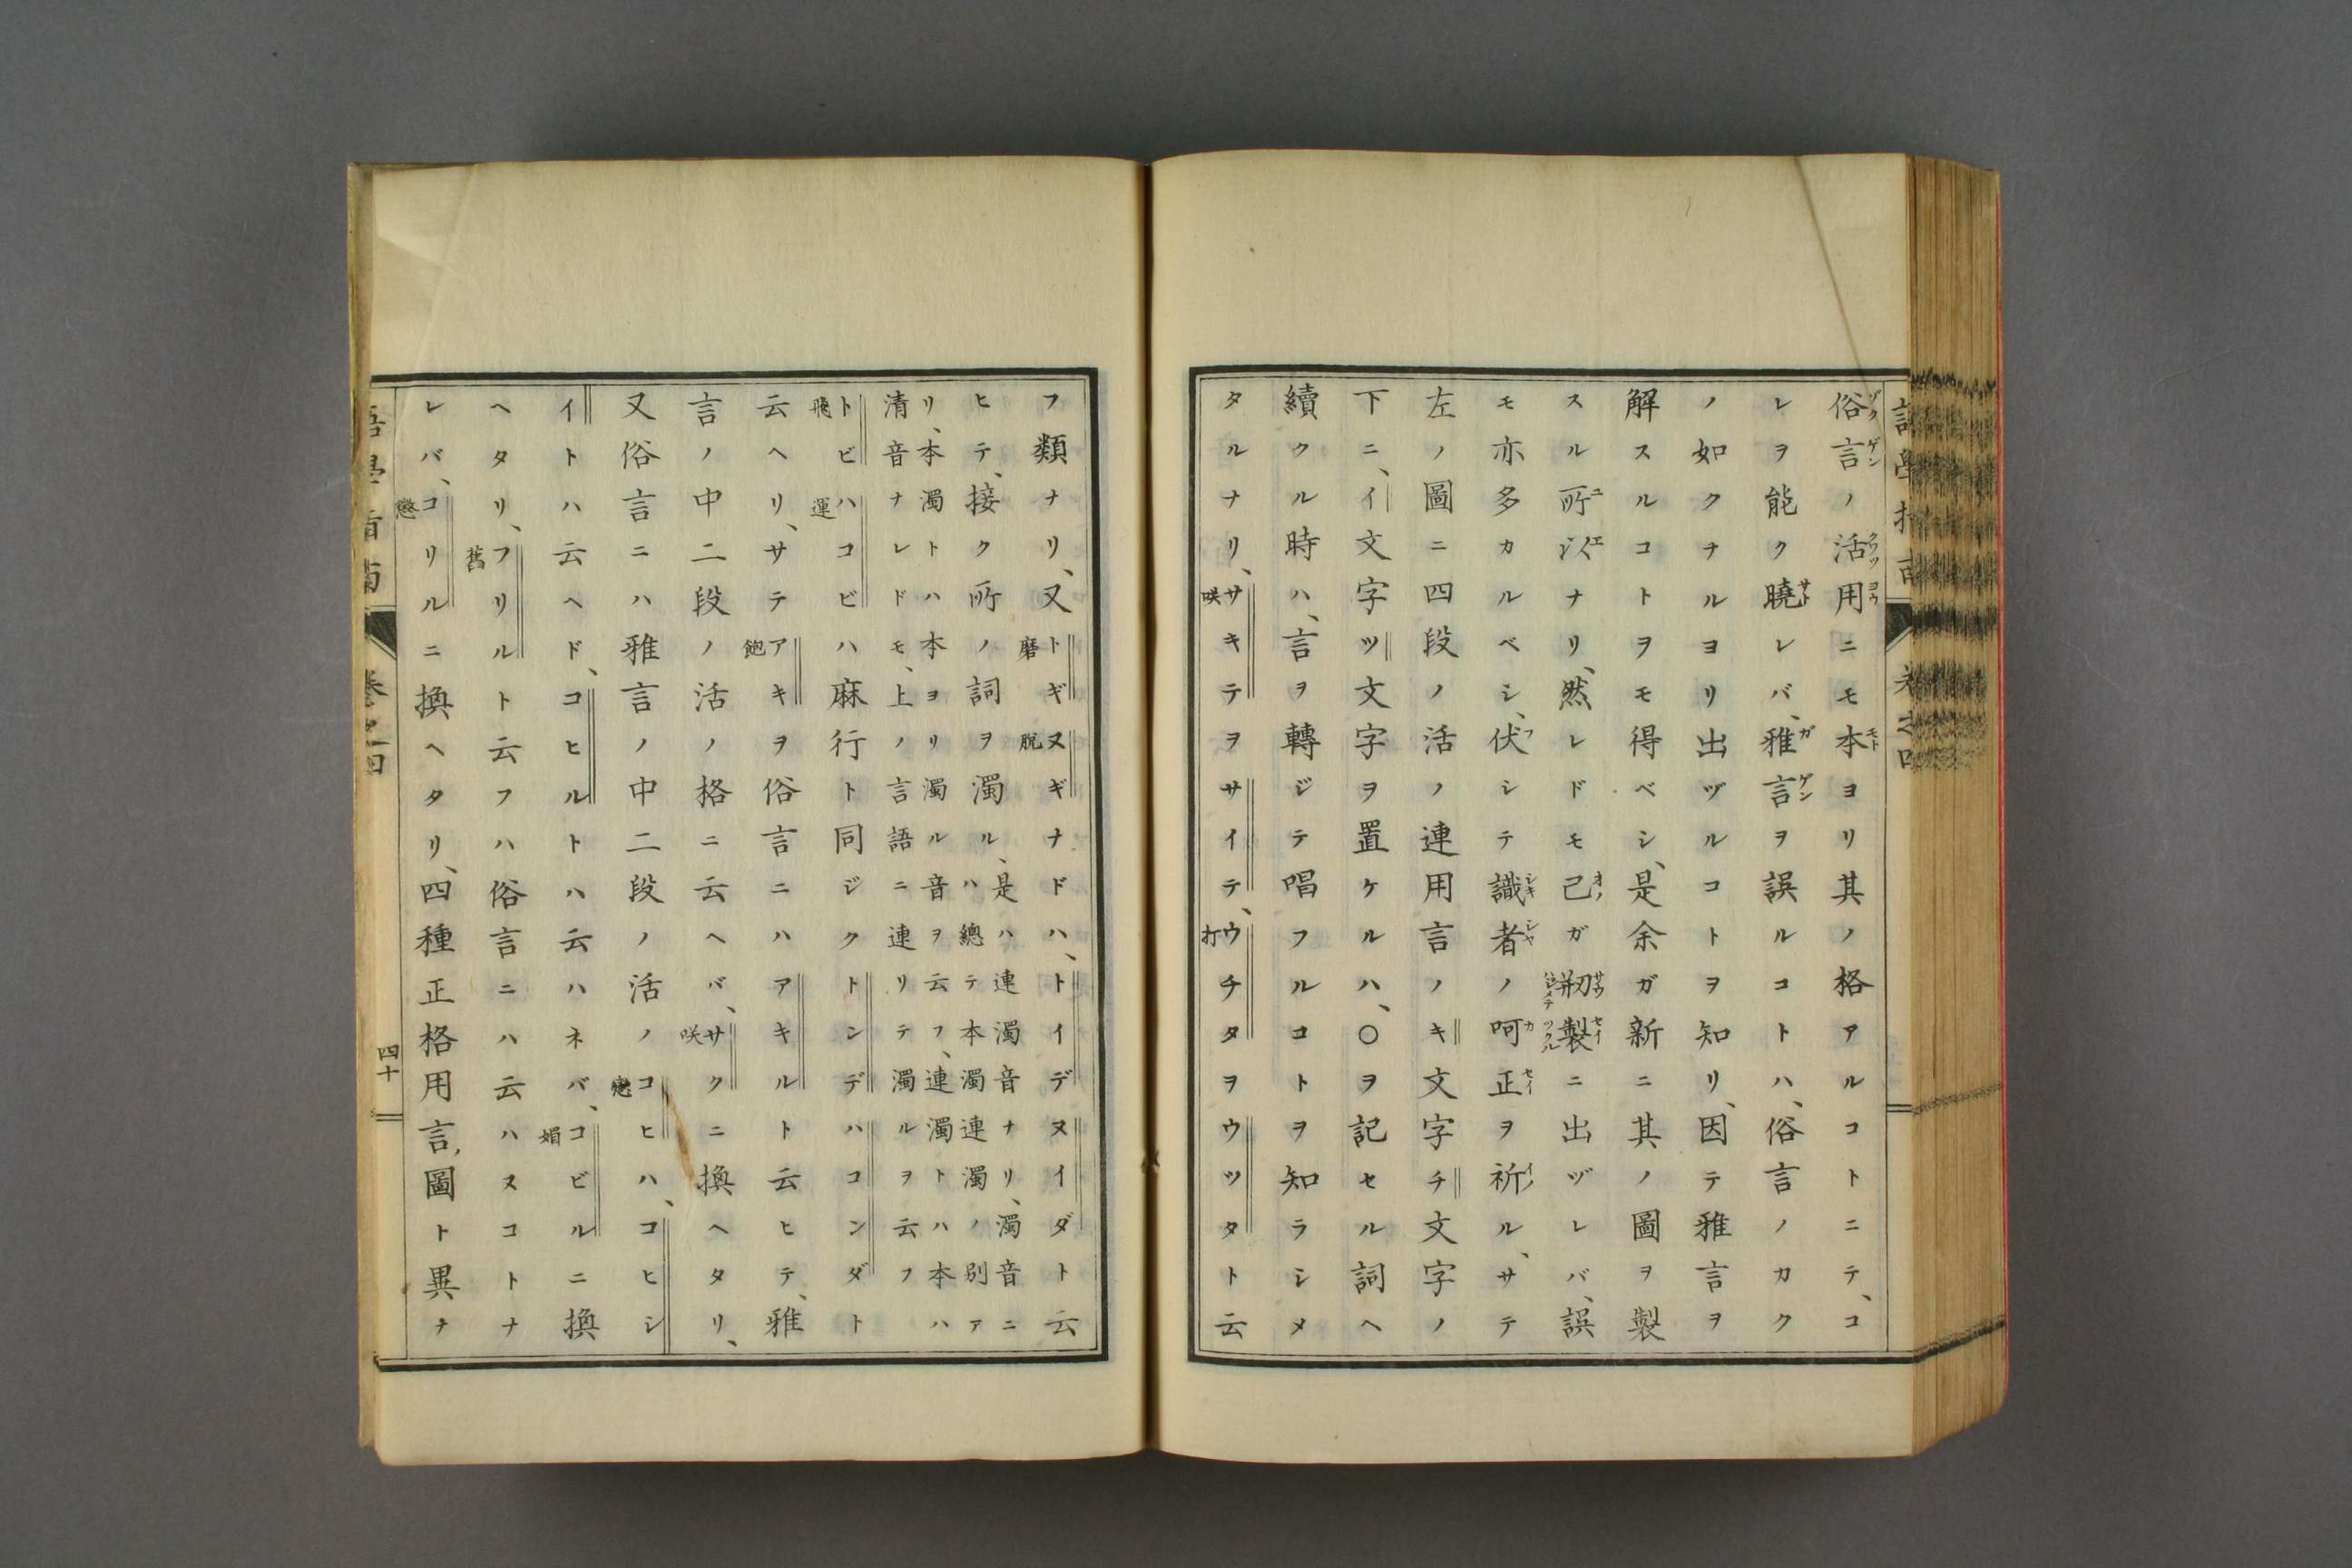 俗言ノ活用ニモ本ヨリ其ノ格アルコトニテ、コ
レヲ能ク曉レバ、雅言ヲ誤ルコトハ、俗言ノカク
ノ如クナルヨリ出ヅルコトヲ知リ、因テ雅言ヲ
解スルコトヲモ得ベシ、是余ガ新ニ其ノ圖ヲ製
スル所以ナリ、然レドモ己ガ剏製ニ出ヅレバ、誤
モ亦多カルベシ、伏シテ識者ノ呵正ヲ祈ル、サテ
左ノ圖ニ四段ノ活ノ連用言ノキ文字チ文字ノ
下ニ、イ文字ツ文字ヲ置ケルハ、○ヲ記セル詞ヘ
續クル時ハ、言ヲ轉ジテ唱フルコトヲ知ラシメ
タルナリ、サキ咲テヲサイテ、ウチ打タヲウツタト云
フ類ナリ、又トギ磨ヌギ脱ナドハ、トイデヌイダト云
ヒテ、接ク所ノ詞ヲ濁ル、是ハ連濁音ナリ、濁音ニ
ハ總テ本濁連濁ノ別ア
リ、本濁トハ本ヨリ濁ル音ヲ云フ、連濁トハ本ハ
清音ナレドモ、上ノ言語ニ連リテ濁ルヲ云フ
トビ飛ハコビ運ハ麻行ト同ジクトンデハコンダト
云ヘリ、サテアキ飽ヲ俗言ニハアキルト云ヒテ、雅
言ノ中二段ノ活ノ格ニ云ヘバ、サク咲ニ換ヘタリ、
又俗言ニハ雅言ノ中二段ノ活ノコヒハ、コヒシ
イトハ云ヘド、コヒルトハ云ハネバ、コビル媚ニ換
ヘタリ、フリル舊ト云フハ俗言ニハ云ハヌコトナ
レバ、コリル懲ニ換ヘタリ、四種正格用言圖ト異ナ
四十